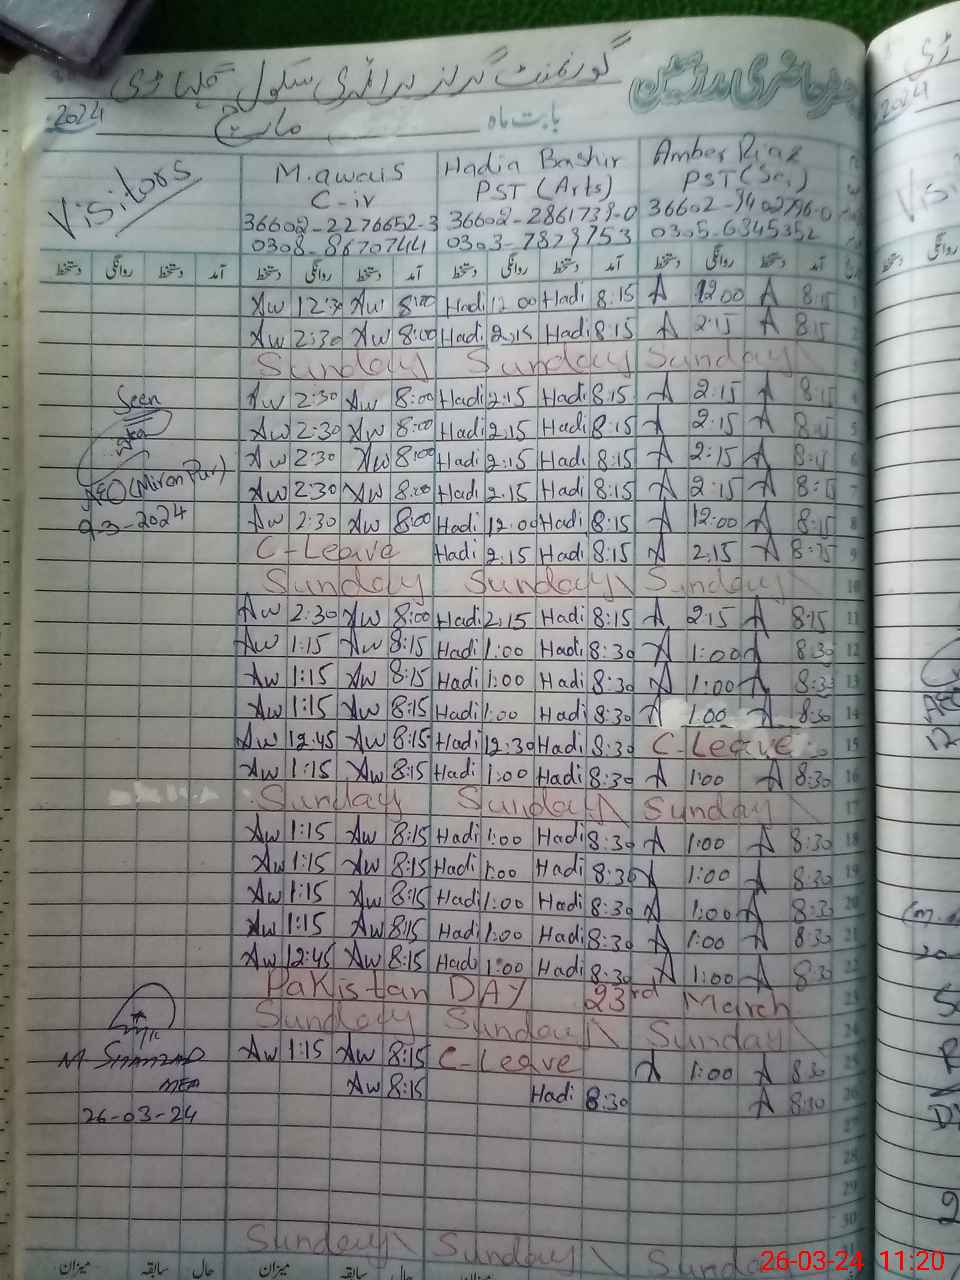 گورنمنٹ گرلز پرائمری سکول
رجسٹر حاضری مدرسین
2024
مارچ
بابت ماہ
Visitors
M. awais
C-iv
36602-2276652-3
0308-8670744
Hadia Bashir
PST (Arts)
36602-2861739-0
0303-7879753
Amber Riaz
PST (Sci)
36602-9402796-0
0305-6345352
دستخط روانگی دستخط آمد دستخط روانگی دستخط آمد دستخط روانگی دستخط آمد دستخط روانگی دستخط آمد
Aw 12:30 Aw 8:00 Hadi 12:00 Hadi 8:15 A 12:00 A 8:15 1
Aw 2:30 Aw 8:00 Hadi 2:15 Hadi 8:15 A 2:15 A 8:15 2
Sunday Sunday Sunday 3
Aw 2:30 Aw 8:00 Hadi 2:15 Hadi 8:15 A 2:15 A 8:15 4
Aw 2:30 Aw 8:00 Hadi 2:15 Hadi 8:15 A 2:15 A 8:15 5
Aw 2:30 Aw 8:00 Hadi 2:15 Hadi 8:15 A 2:15 A 8:15 6
Aw 2:30 Aw 8:00 Hadi 2:15 Hadi 8:15 A 2:15 A 8:15 7
Aw 2:30 Aw 8:00 Hadi 12:00 Hadi 8:15 A 12:00 A 8:15 8
C-Leave Hadi 2:15 Hadi 8:15 A 2:15 A 8:15 9
Sunday Sunday Sunday 10
Aw 2:30 Aw 8:00 Hadi 2:15 Hadi 8:15 A 2:15 A 8:15 11
Aw 1:15 Aw 8:15 Hadi 1:00 Hadi 8:30 A 1:00 A 8:30 12
Aw 1:15 Aw 8:15 Hadi 1:00 Hadi 8:30 A 1:00 A 8:30 13
Aw 1:15 Aw 8:15 Hadi 1:00 Hadi 8:30 A 1:00 A 8:30 14
Aw 12:45 Aw 8:15 Hadi 12:30 Hadi 8:30 C-Leave 15
Aw 1:15 Aw 8:15 Hadi 1:00 Hadi 8:30 A 1:00 A 8:30 16
Sunday Sunday Sunday 17
Aw 1:15 Aw 8:15 Hadi 1:00 Hadi 8:30 A 1:00 A 8:30 18
Aw 1:15 Aw 8:15 Hadi 1:00 Hadi 8:30 A 1:00 A 8:30 19
Aw 1:15 Aw 8:15 Hadi 1:00 Hadi 8:30 A 1:00 A 8:30 20
Aw 1:15 Aw 8:15 Hadi 1:00 Hadi 8:30 A 1:00 A 8:30 21
Aw 12:45 Aw 8:15 Hadi 1:00 Hadi 8:30 A 1:00 A 8:30 22
Pakistan DAY 23rd March 23
Sunday Sunday Sunday 24
Aw 1:15 Aw 8:15 C-Leave A 1:00 A 8:30 25
Aw 8:15 Hadi 8:30 A 8:30 26
27
28
29
30
Sunday Sunday Sunday 31
Seen
AEO (Miran Pur)
9-3-2024
M. SHAHZAD
MEA
26-03-24
میزان سابقہ حال میزان سابقہ حال میزان
2024
26-03-24 11:20